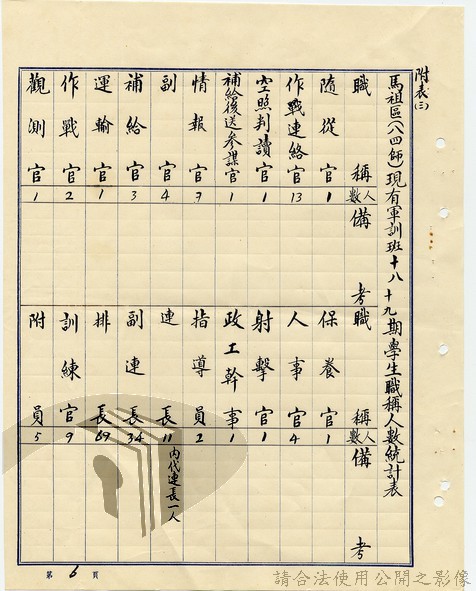 附表(三)
馬祖區(八四師)現有軍訓班十八 十九期學生職稱人數統計表
職稱 人數 備考
隨從官 1
作戰連絡官 13
空照判讀官 1
補給後送參謀官 1
情報官 7
副官 4
補給官 3
運輸官 1
作戰官 2
觀測官 1
職稱 人數 備考
保養官 1
人事官 4
射擊官 1
政工幹事 1
指導員 2
連長 11 內代連長一人
副連長 34
排長 69
訓練官 9
附員 5
第 6 頁
請合法使用公開之影像